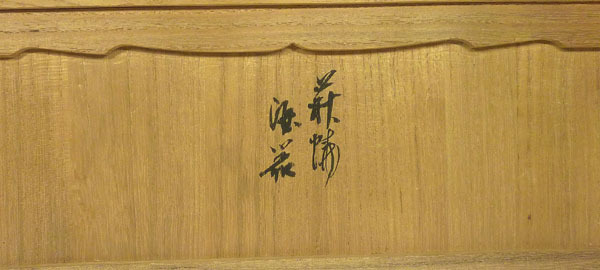 萩焼
酒器